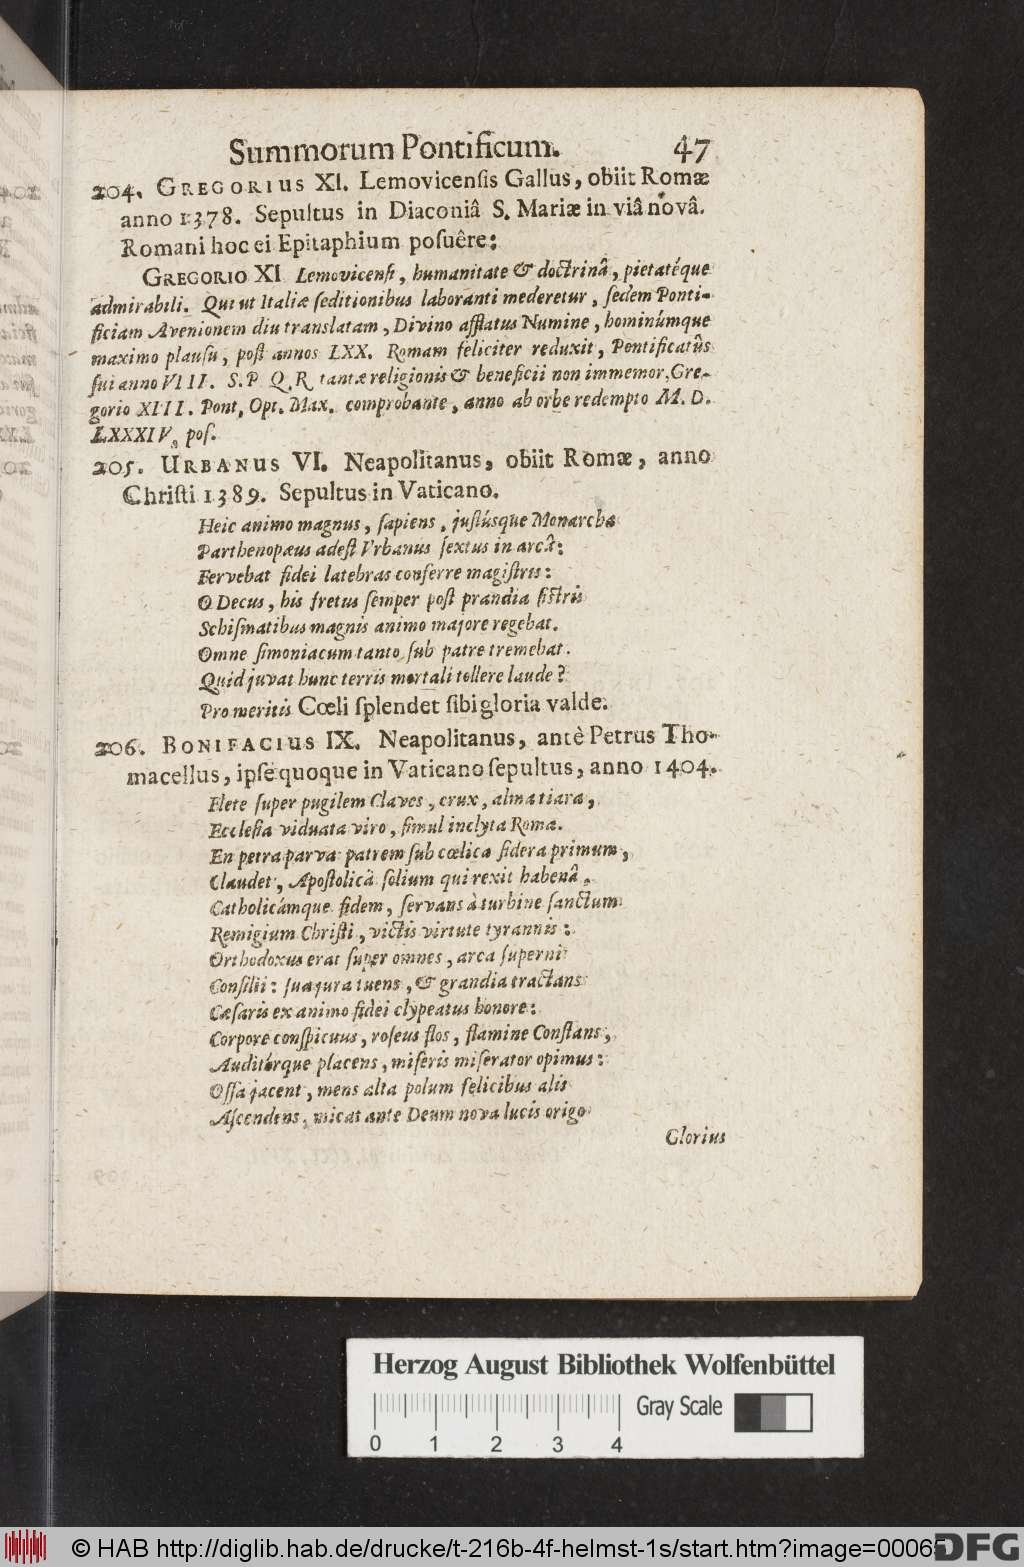 Summorum Pontificum. 47
204. GREGORIUS XI. Lemovicenſis Gallus, obiit Romæ
anno 1378. Sepultus in Diaconiâ S. Mariæ in viâ novâ.
Romani hoc ei Epitaphium poſuêre:
GREGORIO XI Lemovicenſi, humanitate & doctrinâ, pietatéque
admirabili. Qui ut Italiæ ſeditionibus laboranti mederetur, ſedem Ponti-
ficiam Avenionem diu translatam, Divino afflatus Numine, hominúmque
maximo plauſu, poſt annos LXX. Romam feliciter reduxit, Pontificatûs
ſui anno VIII. S. P Q. R tantæ religionis & beneficii non immemor, Gre-
gorio XIII. Pont. Opt. Max. comprobante, anno ab orbe redempto M. D.
LXXXIV. poſ.
205. URBANUS VI. Neapolitanus, obiit Romæ, anno
Chriſti 1389. Sepultus in Vaticano.
Heic animo magnus, ſapiens, juſtúsque Monarcha
Parthenopæus adeſt Vrbanus ſextus in arcâ:
Fervebat fidei latebras conferre magiſtris:
O Decus, his fretus ſemper poſt prandia ſiſtris
Schiſmatibus magnis animo majore regebat.
Omne ſimoniacum tanto ſub patre tremebat.
Quid juvat hunc terris mortali tollere laude?
Pro meritis Cœli ſplendet ſibi gloria valde.
206. BONIFACIUS IX. Neapolitanus, antè Petrus Tho-
macellus, ipſe quoque in Vaticano ſepultus, anno 1404.
Flete ſuper pugilem Claves, crux, alma tiara,
Eccleſia viduata viro, ſimul inclyta Roma.
En petra parva patrem ſub cœlica ſidera primum,
Claudet, Apoſtolicâ ſolium qui rexit habenâ,
Catholicámque fidem, ſervans à turbine ſanctum
Remigium Chriſti, victis virtute tyrannis:
Orthodoxus erat ſuper omnes, arca ſuperni
Conſilii: ſua jura tuens, & grandia tractans
Cæſaris ex animo fidei clypeatus honore:
Corpore conſpicuus, roſeus flos, flamine Conſtans,
Auditórque placens, miſeris miſerator opimus:
Oſſa jacent, mens alta polum felicibus alis
Aſcendens, micat ante Deum nova lucis origo
Glorius
Herzog August Bibliothek Wolfenbüttel
Gray Scale
0 1 2 3 4
© HAB http://diglib.hab.de/drucke/t-216b-4f-helmst-1s/start.htm?image=00065
DFG